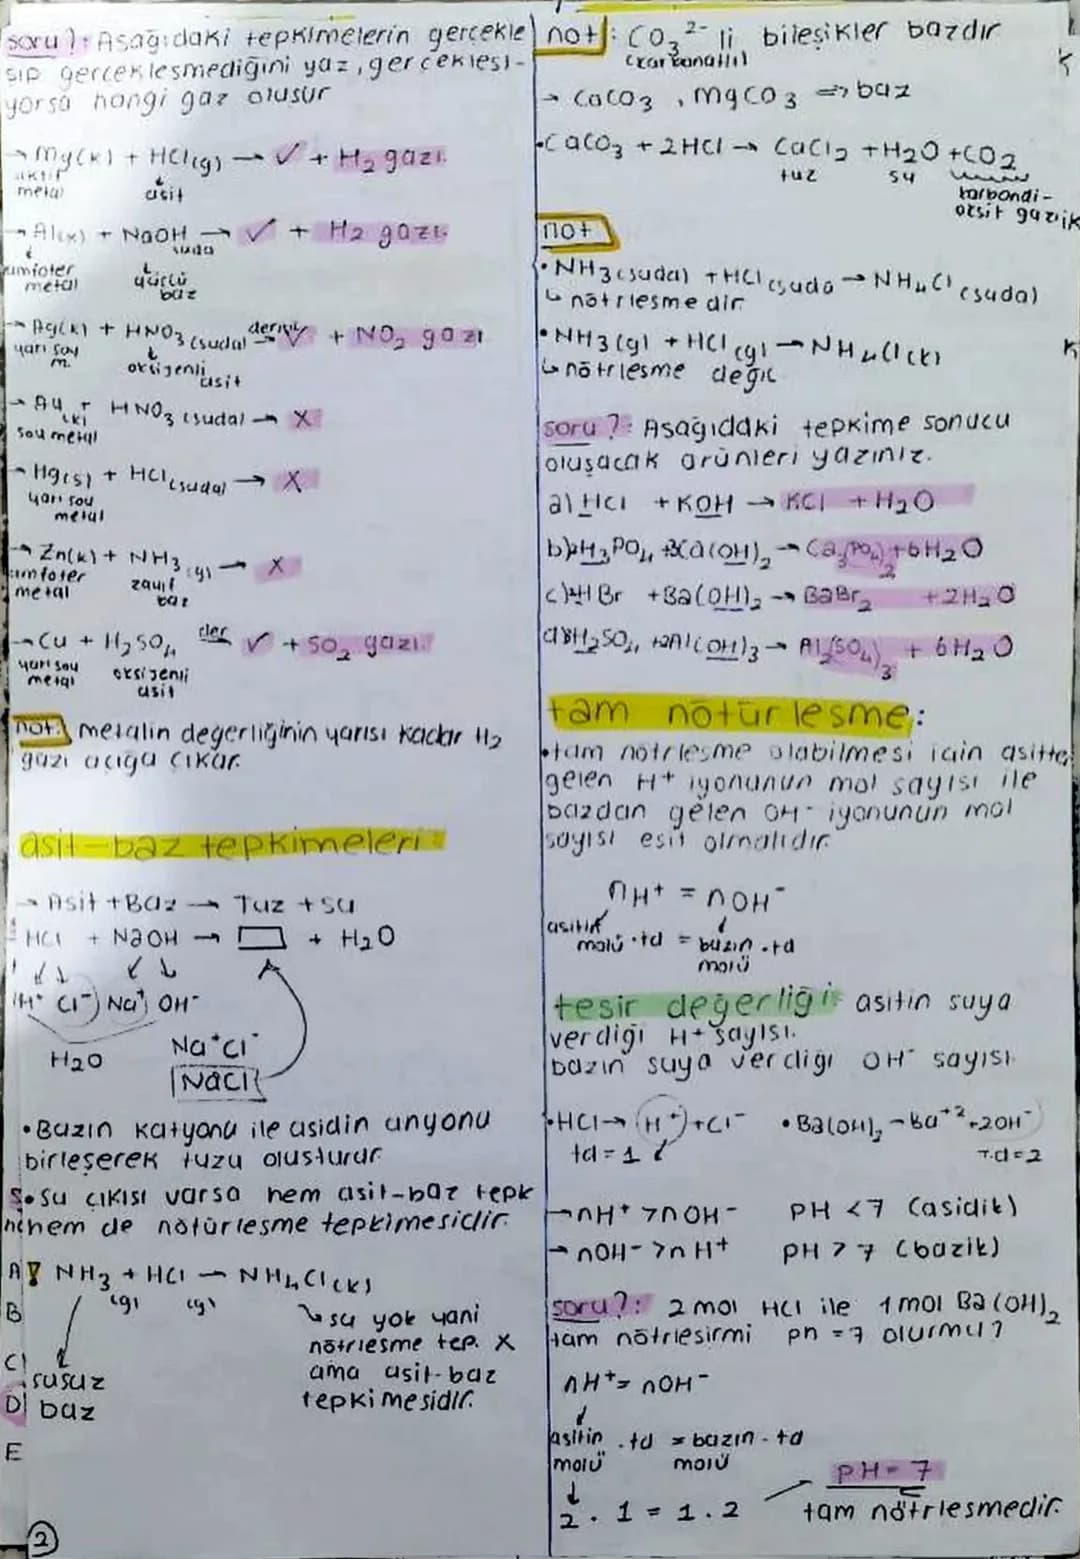 soru?: Aşağıdaki tepkimelerin gerçekle
şip gerçekleşmediğini yaz, gerçekleşi-
yorsa hangi gaz oluşur
→ Mg(k) + HCl(g) → ✓ + H₂ gazı.
aktif metal
asit
→ Al(k) + NaOH suda → ✓ + H₂ gazı.
amfoter metal
güçlü baz
→ Ag(k) + HNO₃(suda) derişik → ✓ + NO₂ gazı
yarı soy m.
oksijenli asit
→ Au(k) + HNO₃(suda) → X
soy metal
→ Hg(s) + HCl(suda) → X
yarı soy metal
→ Zn(k) + NH₃(g) → X
amfoter metal
zayıf baz
→ Cu + H₂SO₄ der → ✓ + SO₂ gazı.
yarı soy metal
oksijenli asit
not: metalin değerliğinin yarısı kadar H₂
gazı açığa çıkar.
asit-baz tepkimeleri:
→ Asit + Baz → Tuz + su
HCl + NaOH → ▭ + H₂O
H⁺ Cl⁻ Na⁺ OH⁻
H₂O
Na⁺Cl⁻
NaCl
• Bazın katyonu ile asidin anyonu
birleşerek tuzu oluşturur.
• Su çıkışı varsa hem asit-baz tepk
hem de nötürleşme tepkimesidir.
! NH₃(g) + HCl(g) → NH₄Cl(k)
susuz baz
↳ su yok yani
nötrleşme tep. X
ama asit-baz
tepkimesidir.
A
B
C)
D)
E
2
not: CO₃²⁻ li bileşikler bazdır
(karbonatlı)
→ CaCO₃, MgCO₃ ⇒ baz
• CaCO₃ + 2HCl → CaCl₂ + H₂O + CO₂
tuz
su
karbondi-
oksit gazı
not
• NH₃(suda) + HCl(suda) → NH₄Cl(suda)
↳ nötrleşmedir.
• NH₃(g) + HCl(g) → NH₄Cl(k)
↳ nötrleşme değil
soru?: Aşağıdaki tepkime sonucu
oluşacak ürünleri yazınız.
a) HCl + KOH → KCl + H₂O
b) 2H₃PO₄ + 3Ca(OH)₂ → Ca₃(PO₄)₂ + 6H₂O
c) 2HBr + Ba(OH)₂ → BaBr₂ + 2H₂O
d) 3H₂SO₄ + 2Al(OH)₃ → Al₂(SO₄)₃ + 6H₂O
tam nötürleşme:
• tam nötrleşme olabilmesi için asitte
gelen H⁺ iyonunun mol sayısı ile
bazdan gelen OH⁻ iyonunun mol
sayısı eşit olmalıdır.
nH⁺ = nOH⁻
asitin molü . td = bazın molü . td
tesir değerliği: asitin suya
verdiği H⁺ sayısı.
bazın suya verdiği OH⁻ sayısı
• HCl → H⁺ + Cl⁻ • Ba(OH)₂ → Ba⁺² + 2OH⁻
td = 1
T.d = 2
→ nH⁺ > nOH⁻ PH < 7 (asidik)
→ nOH⁻ > nH⁺ PH > 7 (bazik)
soru?: 2 mol HCl ile 1 mol Ba(OH)₂
tam nötrleşirmi ph = 7 olurmu?
nH⁺ = nOH⁻
asitin molü . td = bazın molü . td
2 . 1 = 1 . 2
PH = 7
tam nötrleşmedir.